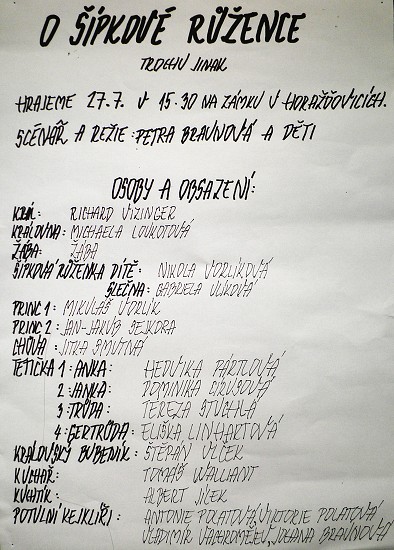 O ŠÍPKOVÉ RŮŽENCE
TROCHU JINAK
HRAJEME 27.7. V 15.30 NA ZÁMKU V HORAŽĎOVICÍCH.
SCÉNÁŘ A REŽIE: PETRA BRAUNOVÁ A DĚTI
OSOBY A OBSAZENÍ:
KRÁL: RICHARD VIZINGER
KRÁLOVNA: MICHAELA LOUKOTOVÁ
ŽÁBA: ŽÁBA
ŠÍPKOVÁ RŮŽENKA DÍTĚ: NIKOLA VORLÍKOVÁ
SLEČNA: GABRIELA VLČKOVÁ
PRINC 1: MIKULÁŠ VORLÍK
PRINC 2: JAN-JAKUB SEJKORA
CHŮVA: JITKA SMUTNÁ
TETIČKA 1: ANKA: HEDVIKA PÁRTLOVÁ
2: JANKA: DOMINIKA CÍRUSOVÁ
3: TRŮDA: TEREZA STUCHLÁ
4: GERTRŮDA: ELIŠKA LINHARTOVÁ
KRÁLOVSKÝ BUBENÍK: ŠTĚPÁN VLČEK
KUCHAŘ: TOMÁŠ WALLIANT
KUCHTÍK: ALBERT JÍLEK
POTULNÍ KEJKLÍŘI: ANTONIE POLATOVÁ, VIKTORIE POLATOVÁ
VLADIMÍR JOHANA BRAUNOVÁ